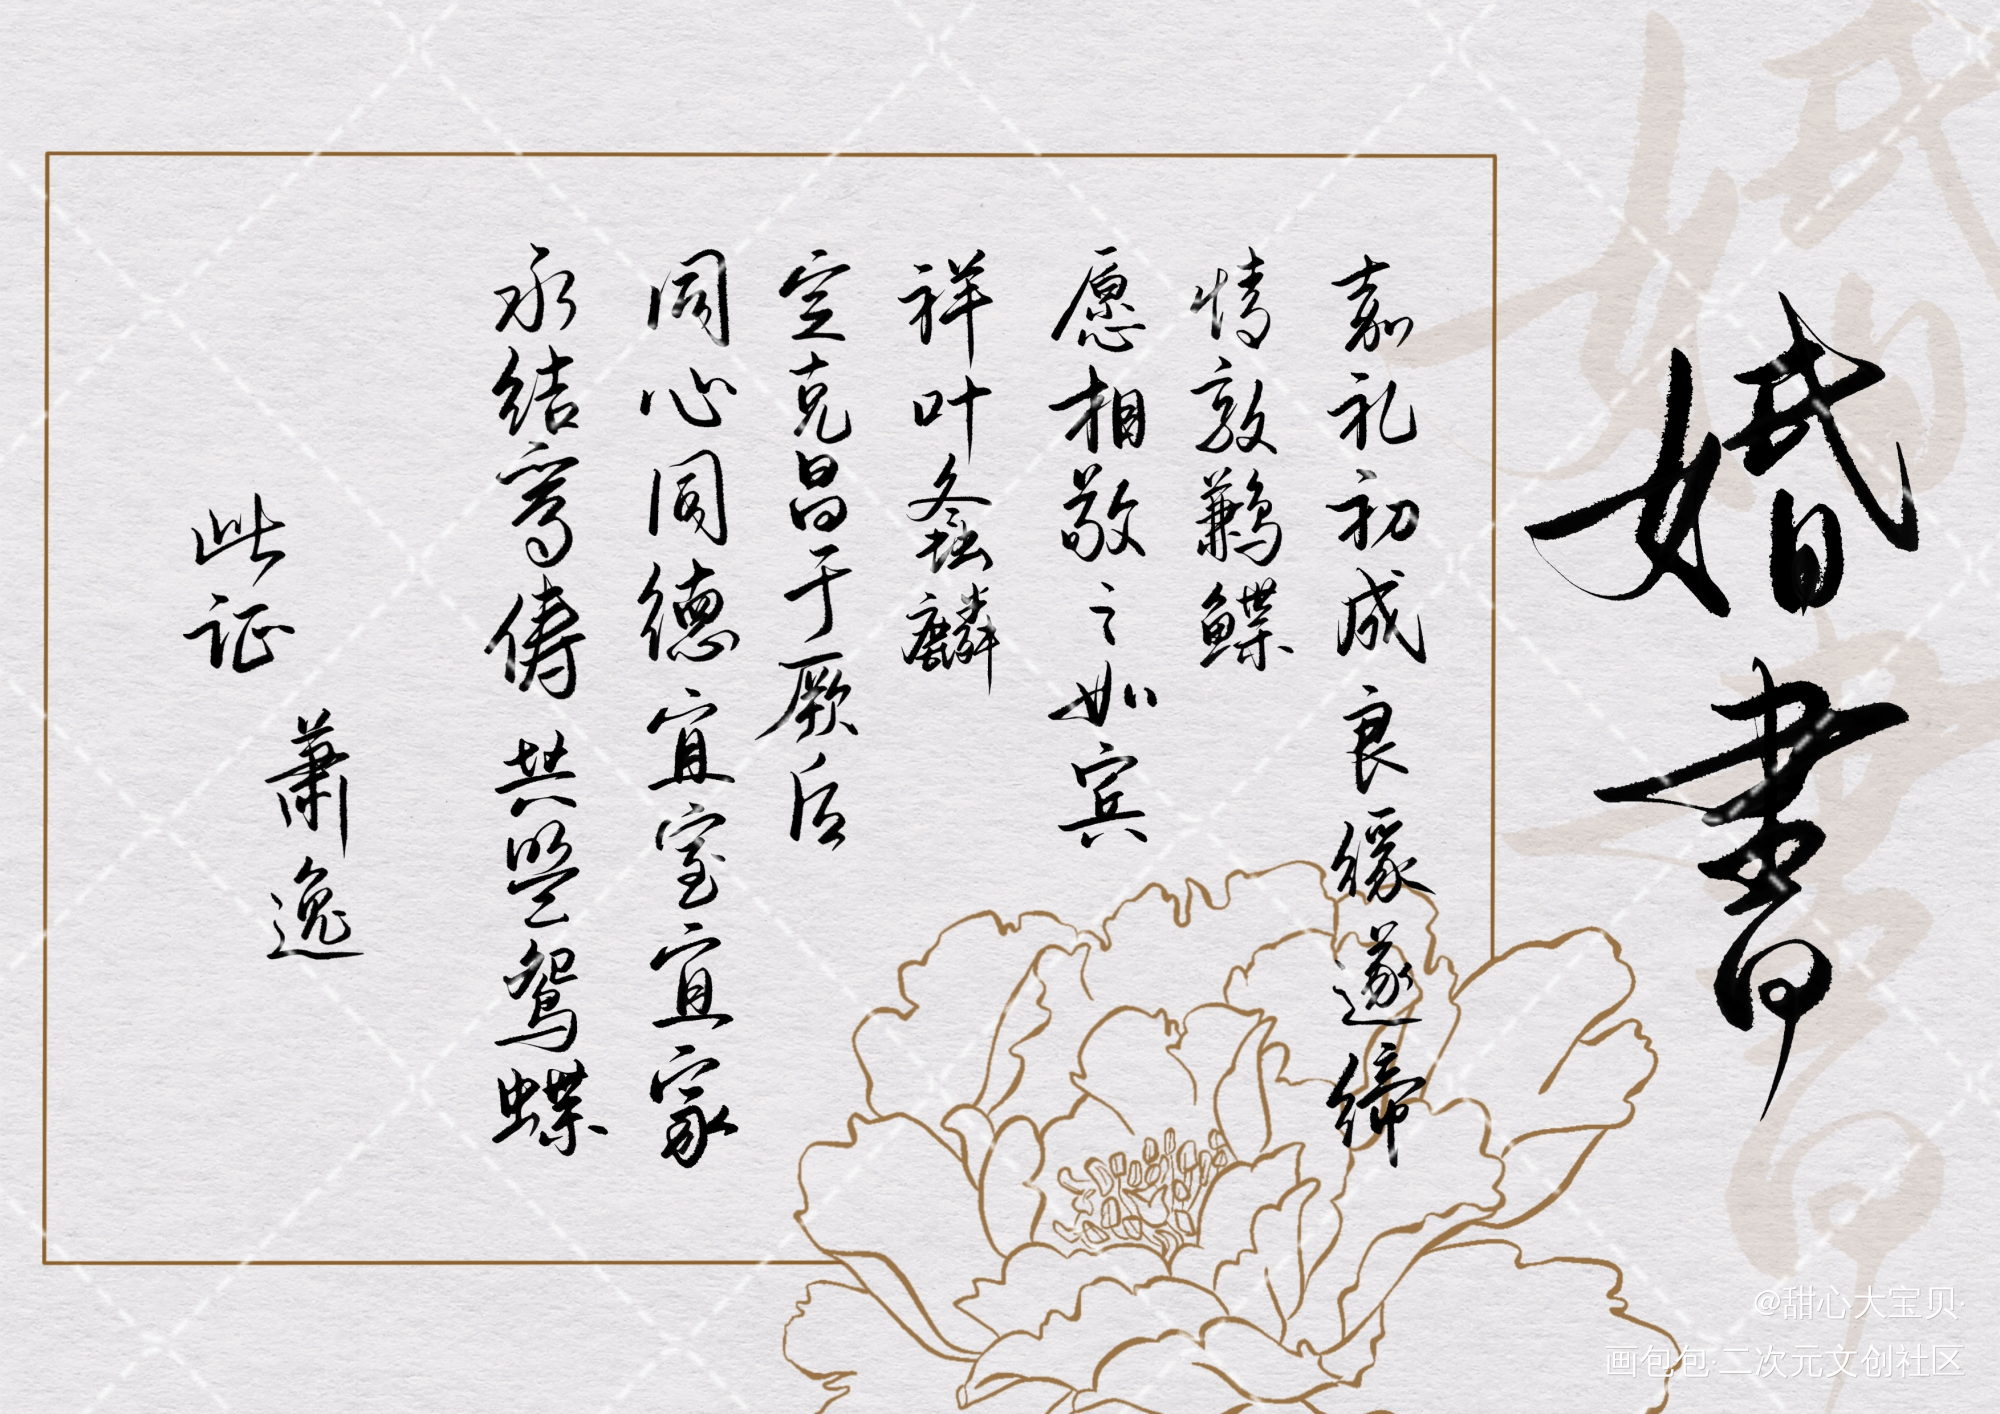 婚書
嘉礼初成良缘遂缔
情敦鹣鲽
愿相敬之如宾
祥叶螽麟
定克昌于厥后
同心同德宜室宜家
永结鸾俦共盟鸳蝶
此证
萧逸
婚書
@甜心大宝贝·
画包包·二次元文创社区